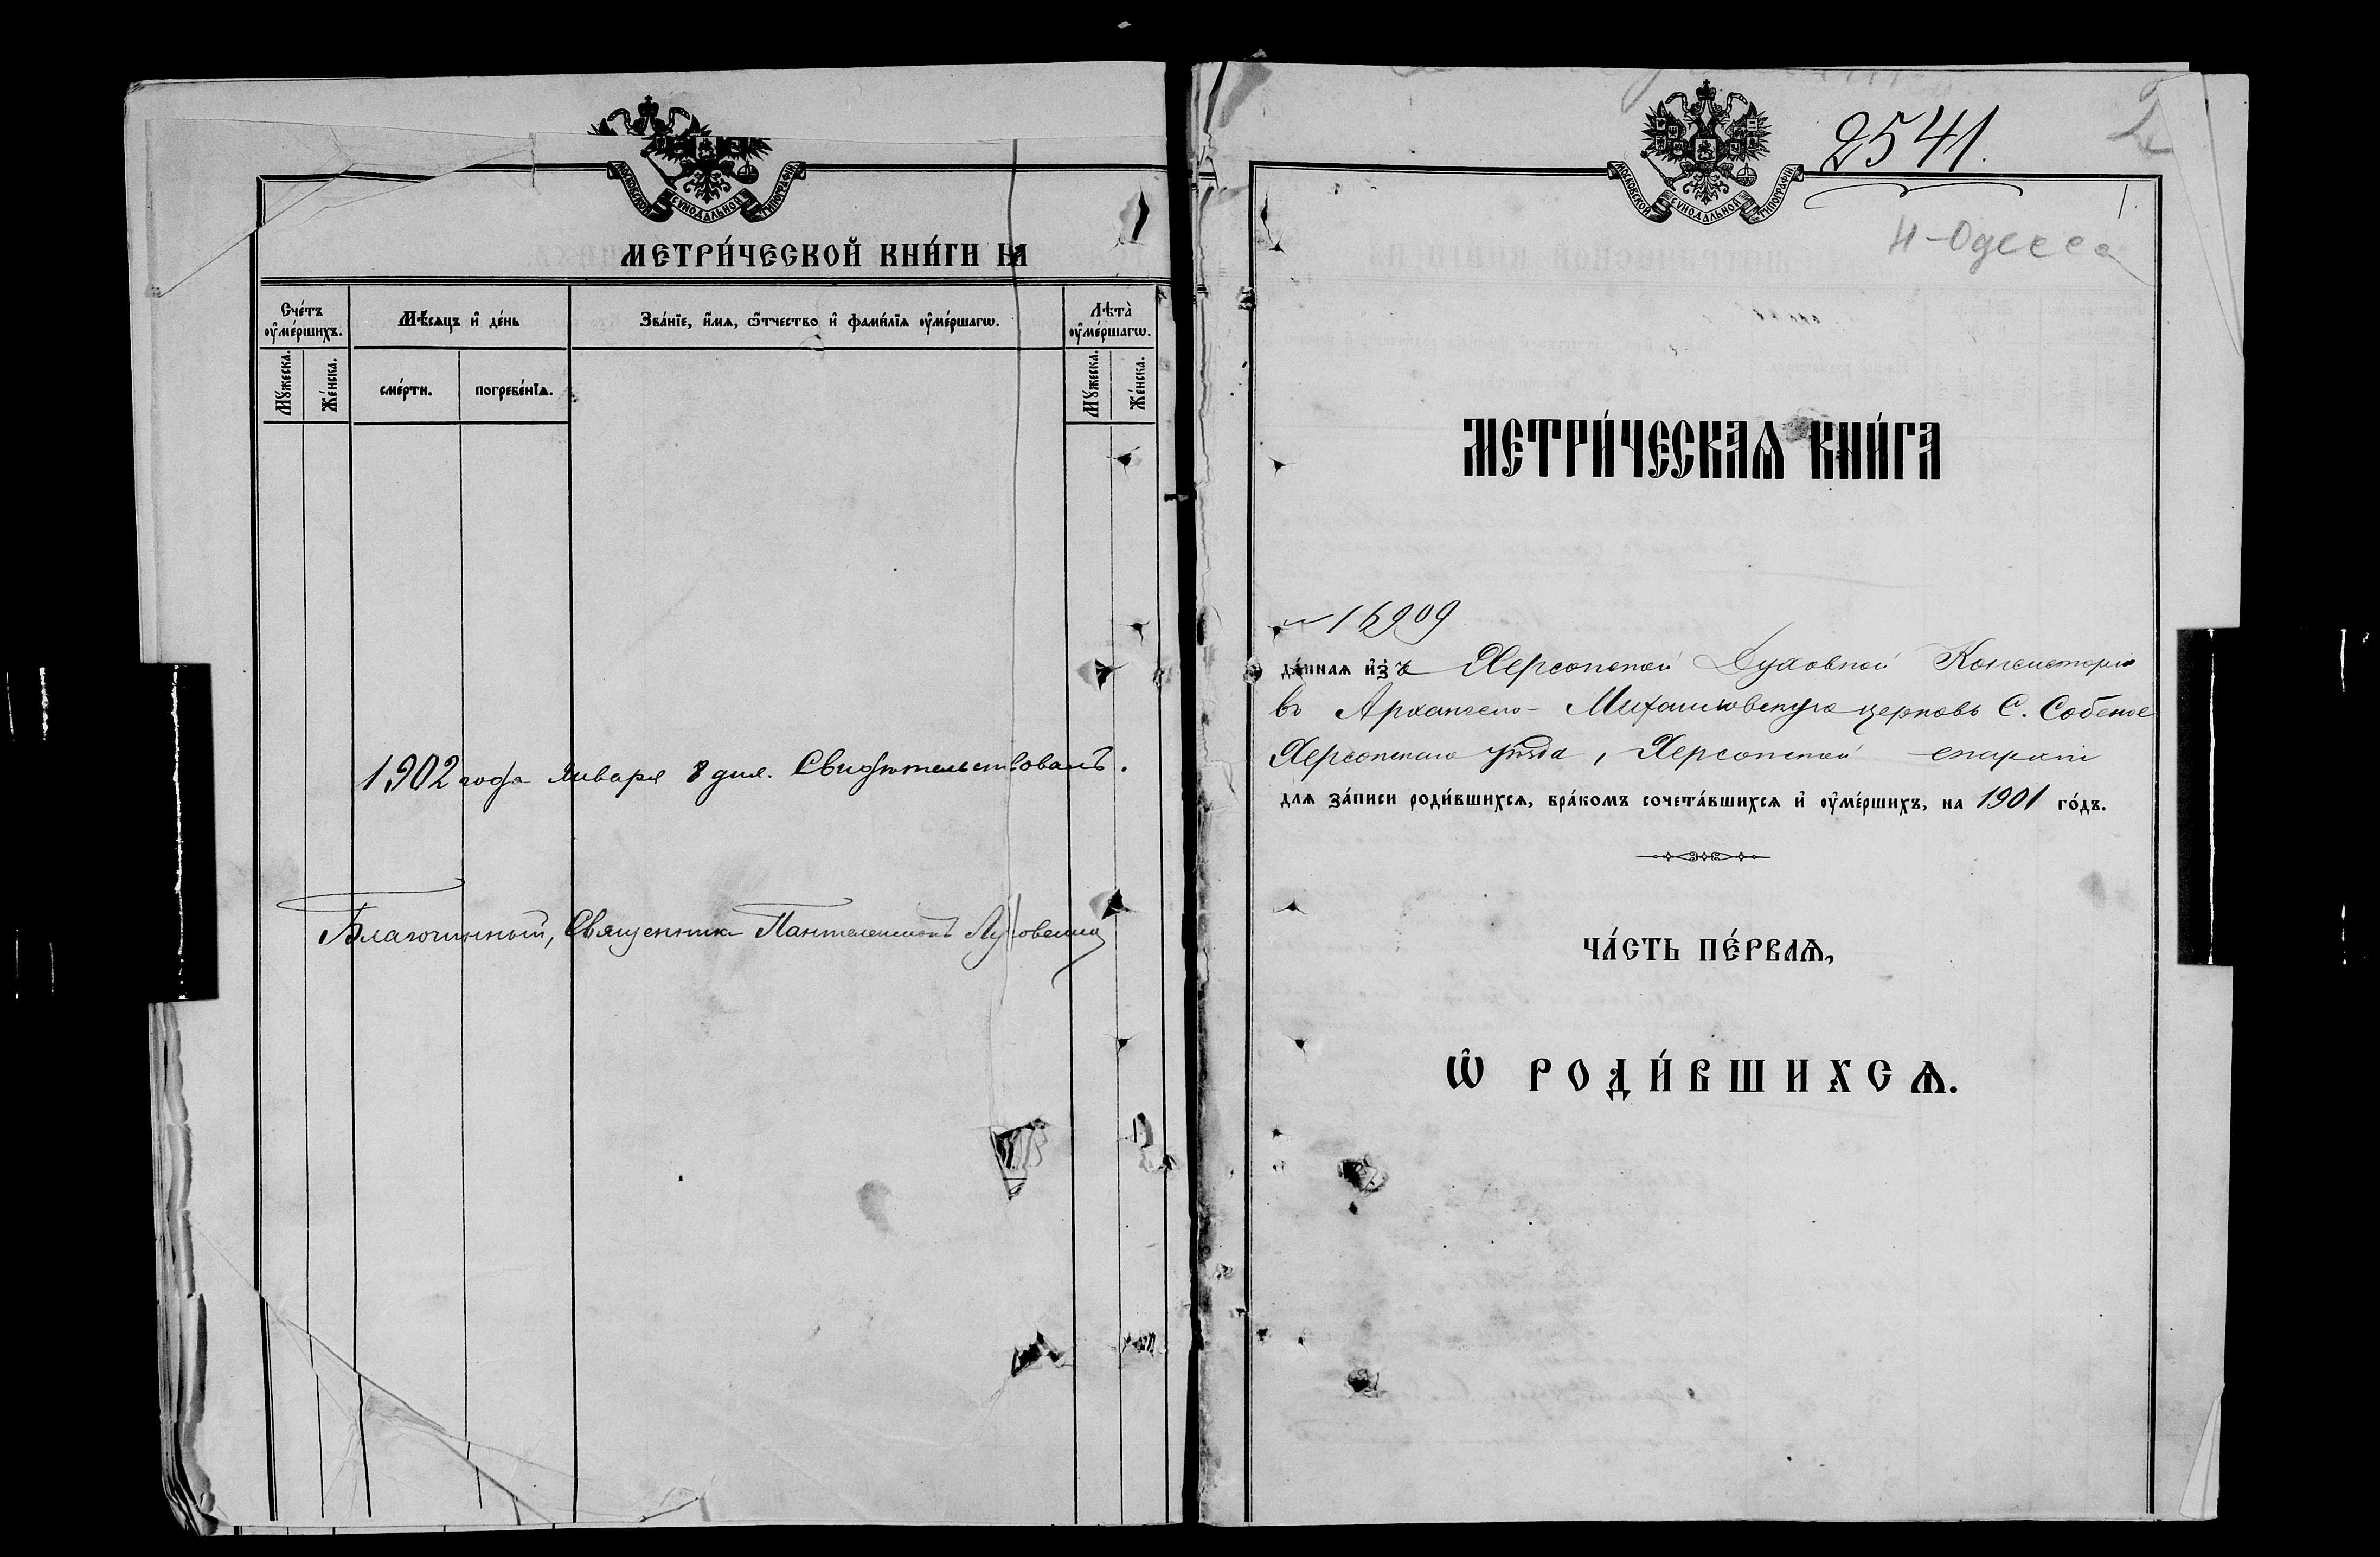 МОСКОВСКОЙ СѴНОДАЛЬНОЙ ТИПОГРАФІИ
МЕТРИ́ЧЕСКОЙ КНИ́ГИ НА
Сче́тъ ᲂу҆ме́ршихъ.
Мѣ́сяцъ и҆ де́нь
Зва́нїе, и҆́мѧ, ѻ҆́тчество и҆ фами́лїѧ ᲂу҆ме́ршагѡ.
Лѣта̀ ᲂу҆ме́ршагѡ.
Мꙋ́жеска.
Же́нска.
сме́рти.
погребе́нїѧ.
Мꙋ́жеска.
Же́нска.
1902 года Января 8 дня. Свидѣтельствовалъ.
Благочинный, Священникъ Пантелеимонъ
2541.
МОСКОВСКОЙ СѴНОДАЛЬНОЙ ТИПОГРАФІИ
1.
Н-Одесса
МЕТРИ́ЧЕСКАѦ КНИ́ГА
№ 16909
да́нная и҆зъ Херсонской Духовной Консисторіи
въ Архангело-Михаиловскую церковь С.
Херсонскаго уѣзда, Херсонской епархіи
для за́писи роди́вшихсѧ, бра́комъ сочета́вшихсѧ и҆ ᲂу҆ме́ршихъ, на 1901 го́дъ.
ЧА́СТЬ ПЕ́РВАѦ,
Ѽ РОДИ́ВШИХСѦ.